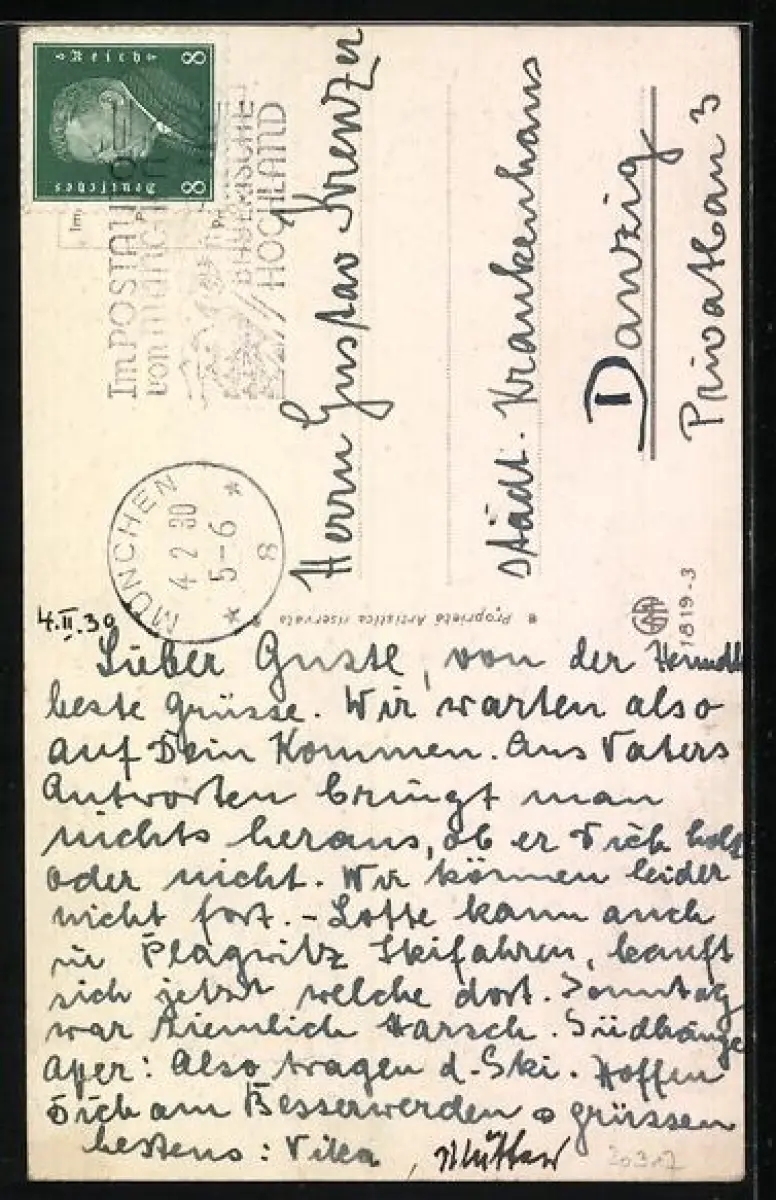 Deutsches
Reich
8
8
Im POSTAUTO
von MÜNCHEN
BAYERISCHE
HOCHLAND
MÜNCHEN
4 2 30
5-6
8
Herrn Gustav Krenzer
städt. Krankenhaus
Danzig
Privatbau 3
Proprietà Artistica riservata
1819-3
4.II.30
Lieber Gustl, von der
beste Grüsse. Wir warten also
auf Dein Kommen. Aus Vaters
Antworten bringt man
nichts heraus, ob er Dich holt
oder nicht. Wir können leider
nicht fort. - Lotte kann auch
in Plagwitz Skifahren, kauft
sich jetzt welche dort. Sonntag
war ziemlich Harsch. Südhänge
aper: Also tragen d. Ski. Hoffen
Dich am Besserwerden &amp; grüssen
bestens: